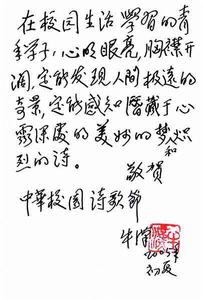 在校园生活学习的青
年学子，心明眼亮，胸襟开
阔，定能发现人间极远的
奇景，定能感知潜藏于心
灵深处的美妙的梦和炽
烈的诗。
敬贺
中华校园诗歌节
牛汉
二〇〇五年
初夏